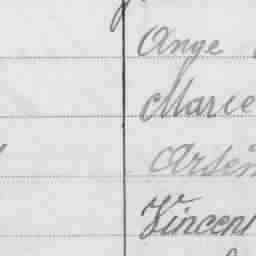 Ange
Marie
Arsèn
Vincent